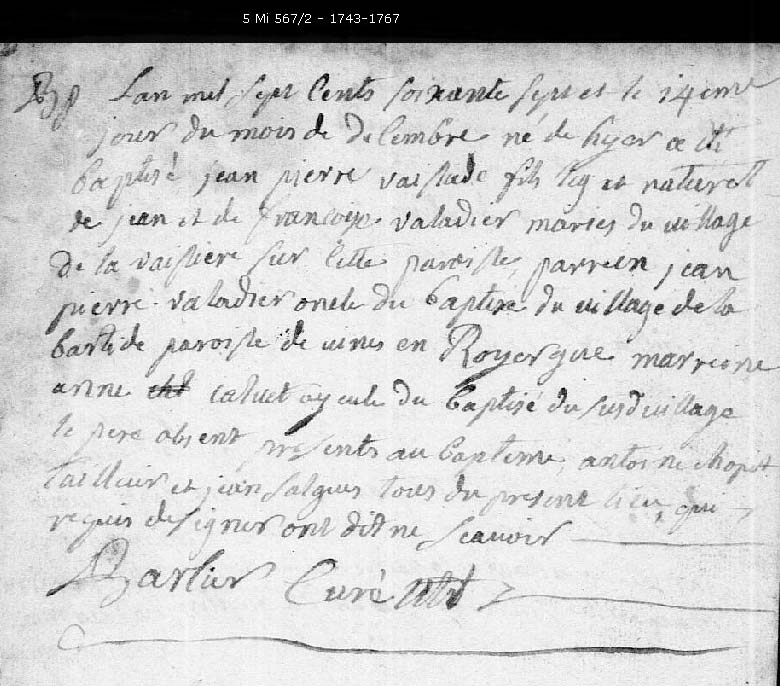 5 Mi 567/2 - 1743-1767
Bp Lan mil sept Cents soixante sept et le 14eme
jour du mois de decembre né de hyer a eté
baptisé jean pierre vaissade fils leg et naturel
de jean et de francoise valadier maries du village
de la vaissiere sur cette paroisse, parrein jean
pierre valadier oncle du baptise du village de la
bastide paroisse de vines en Royergue marreine
anne calvet ayeule du baptisé du susd village
le pere absent presents au bapteme, antoine chapit
tailleur et jean salgues tous du present lieu, qui
requis de signer ont dit ne scavoir
Barlier Curé